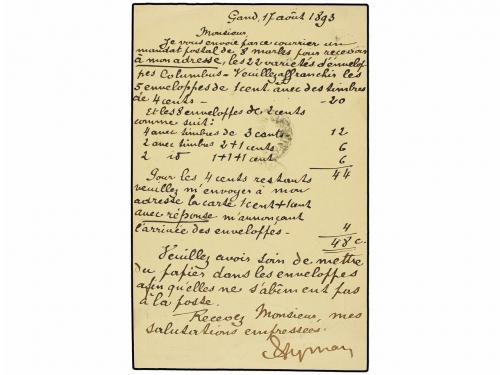 Gand, 17 août 1893
Monsieur,
Je vous envoie par ce courrier un
mandat postal de 8 marks pour recevoir
à mon adresse, les 22 varietés d'envelop
pes Columbus - Veuillez affranchir les
5 enveloppes de 1 cent avec des timbres
de 4 cents - 20
Et les 8 enveloppes de 2 cents
comme suit:
4 avec timbres de 3 cents 12
2 avec timbres 2+1 cent 6
2 id 1+1+1 cent 6
44
Pour les 4 cents restants
veuillez m'envoyer à mon
adresse la carte 1 cent + 1 cent
avec réponse m'annonçant
l'arrivée des enveloppes - 4
48 c.
Veuillez avoir soin de mettre
du papier dans les enveloppes
afin qu'elles ne s'abiment pas
à la poste.
Recevez Monsieur, mes
salutations empressées.